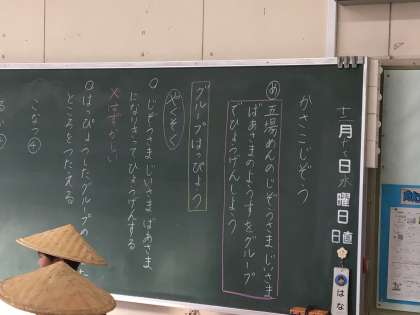 十二月七日水曜日
日直
はな
かさこじぞう
め
五場めんのじぞうさまじいさま
ばあさまのようすをグループ
でひょうげんしよう
グループはっぴょう
やくそく
○じぞうさまじいさまばあさま
になりきってひょうげんする
×はずかしい
○はっぴょうしたグループの
ところをつたえる
こなつ